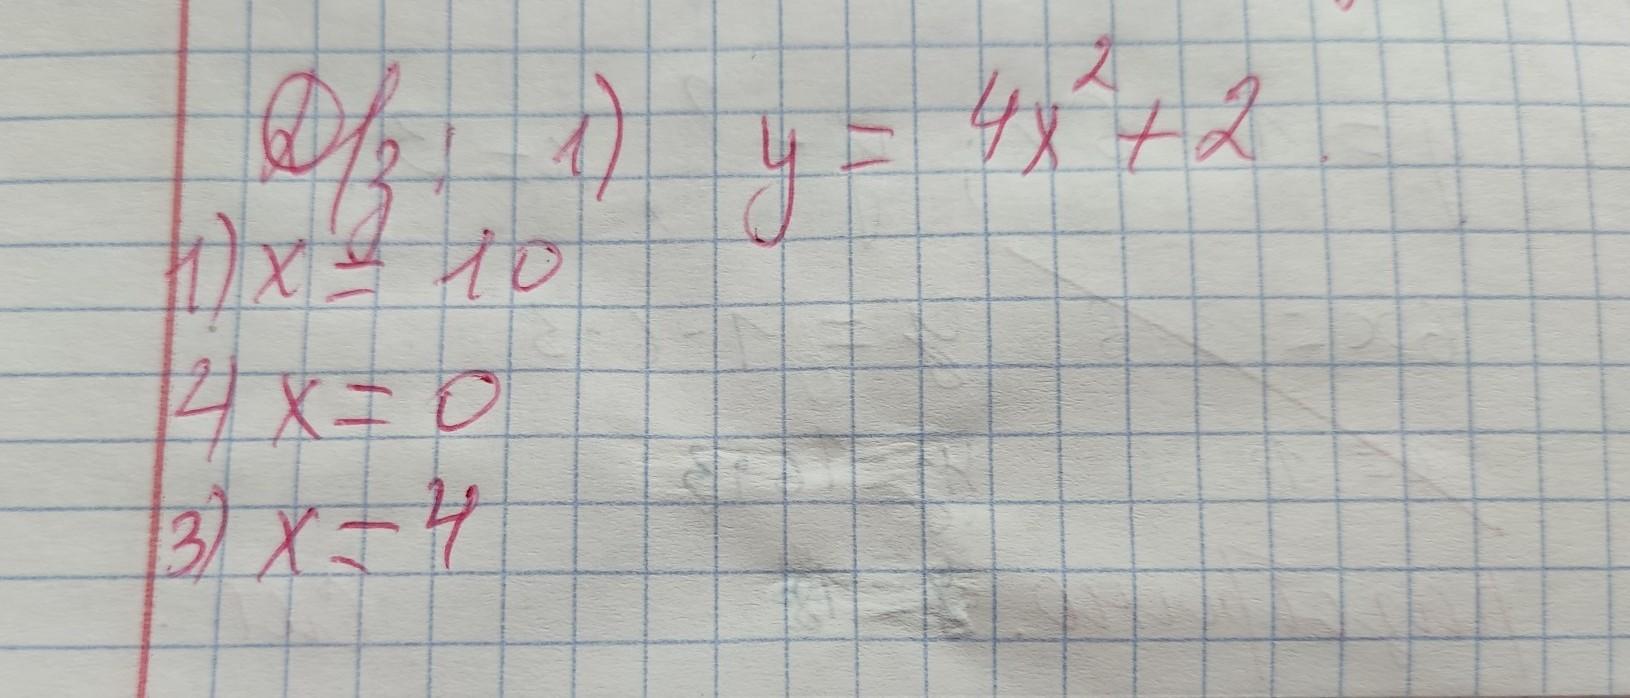 Д/з: 1) y = 4x² + 2.
1) x = 10
2) x = 0
3) x = 4